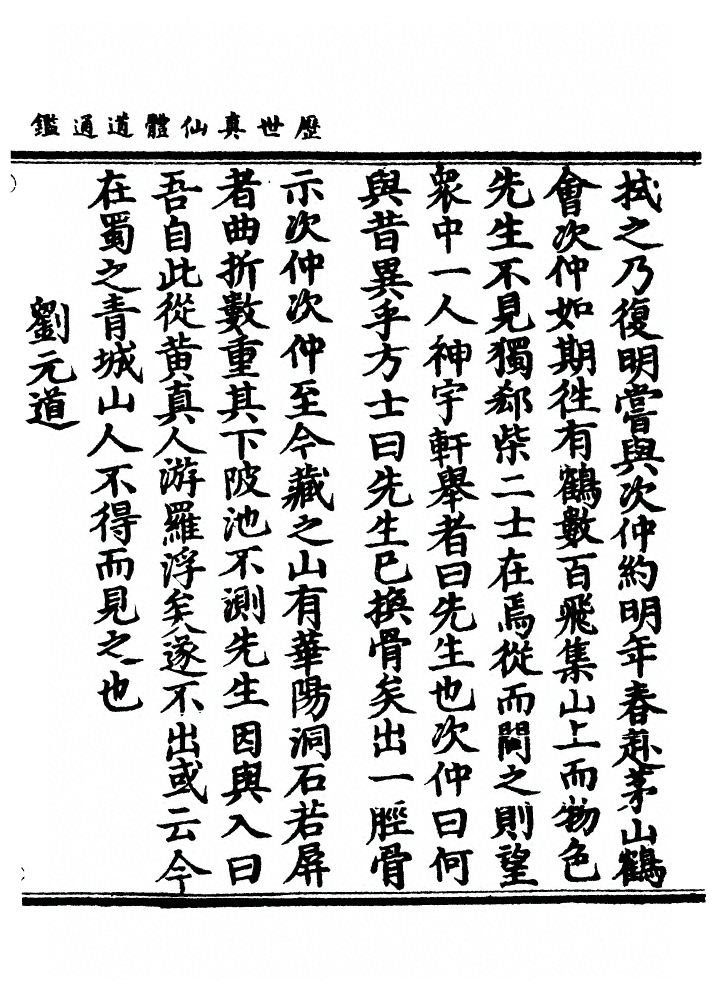 歷世真仙體道通鑑
拭之乃復明嘗與次仲約明年春赴茅山鶴
會次仲如期徃有鶴數百飛集山上而物色
先生不見獨郄柴二士在焉從而問之則望
衆中一人神宇軒舉者曰先生也次仲曰何
與昔異乎方士曰先生已換骨矣出一脛骨
示次仲次仲至今藏之山有華陽洞石若屏
者曲折數重其下陂池不測先生因與入曰
吾自此從黃真人游羅浮矣遂不出或云今
在蜀之青城山人不得而見之也
劉元道